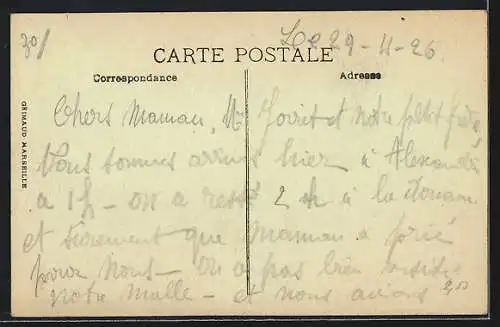 30/
Le 29-4-26
CARTE POSTALE
Correspondance
Adresse
GRIMAUD MARSEILLE
Chers Maman, Mr Jouret et notre petit frère,
Vous sommes arrivés hier à Alexandrie
a 1h - on a resté 2 h à la douane
et surement que Maman a prié
pour Nous - on a pas bien
notre Malle - et nous avions
2,50